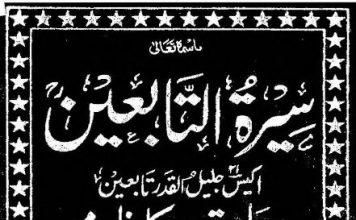 باسمہٖ تعالیٰ
سیرۃ التابعین
اکیس ۲۱ جلیل القدر تابعین